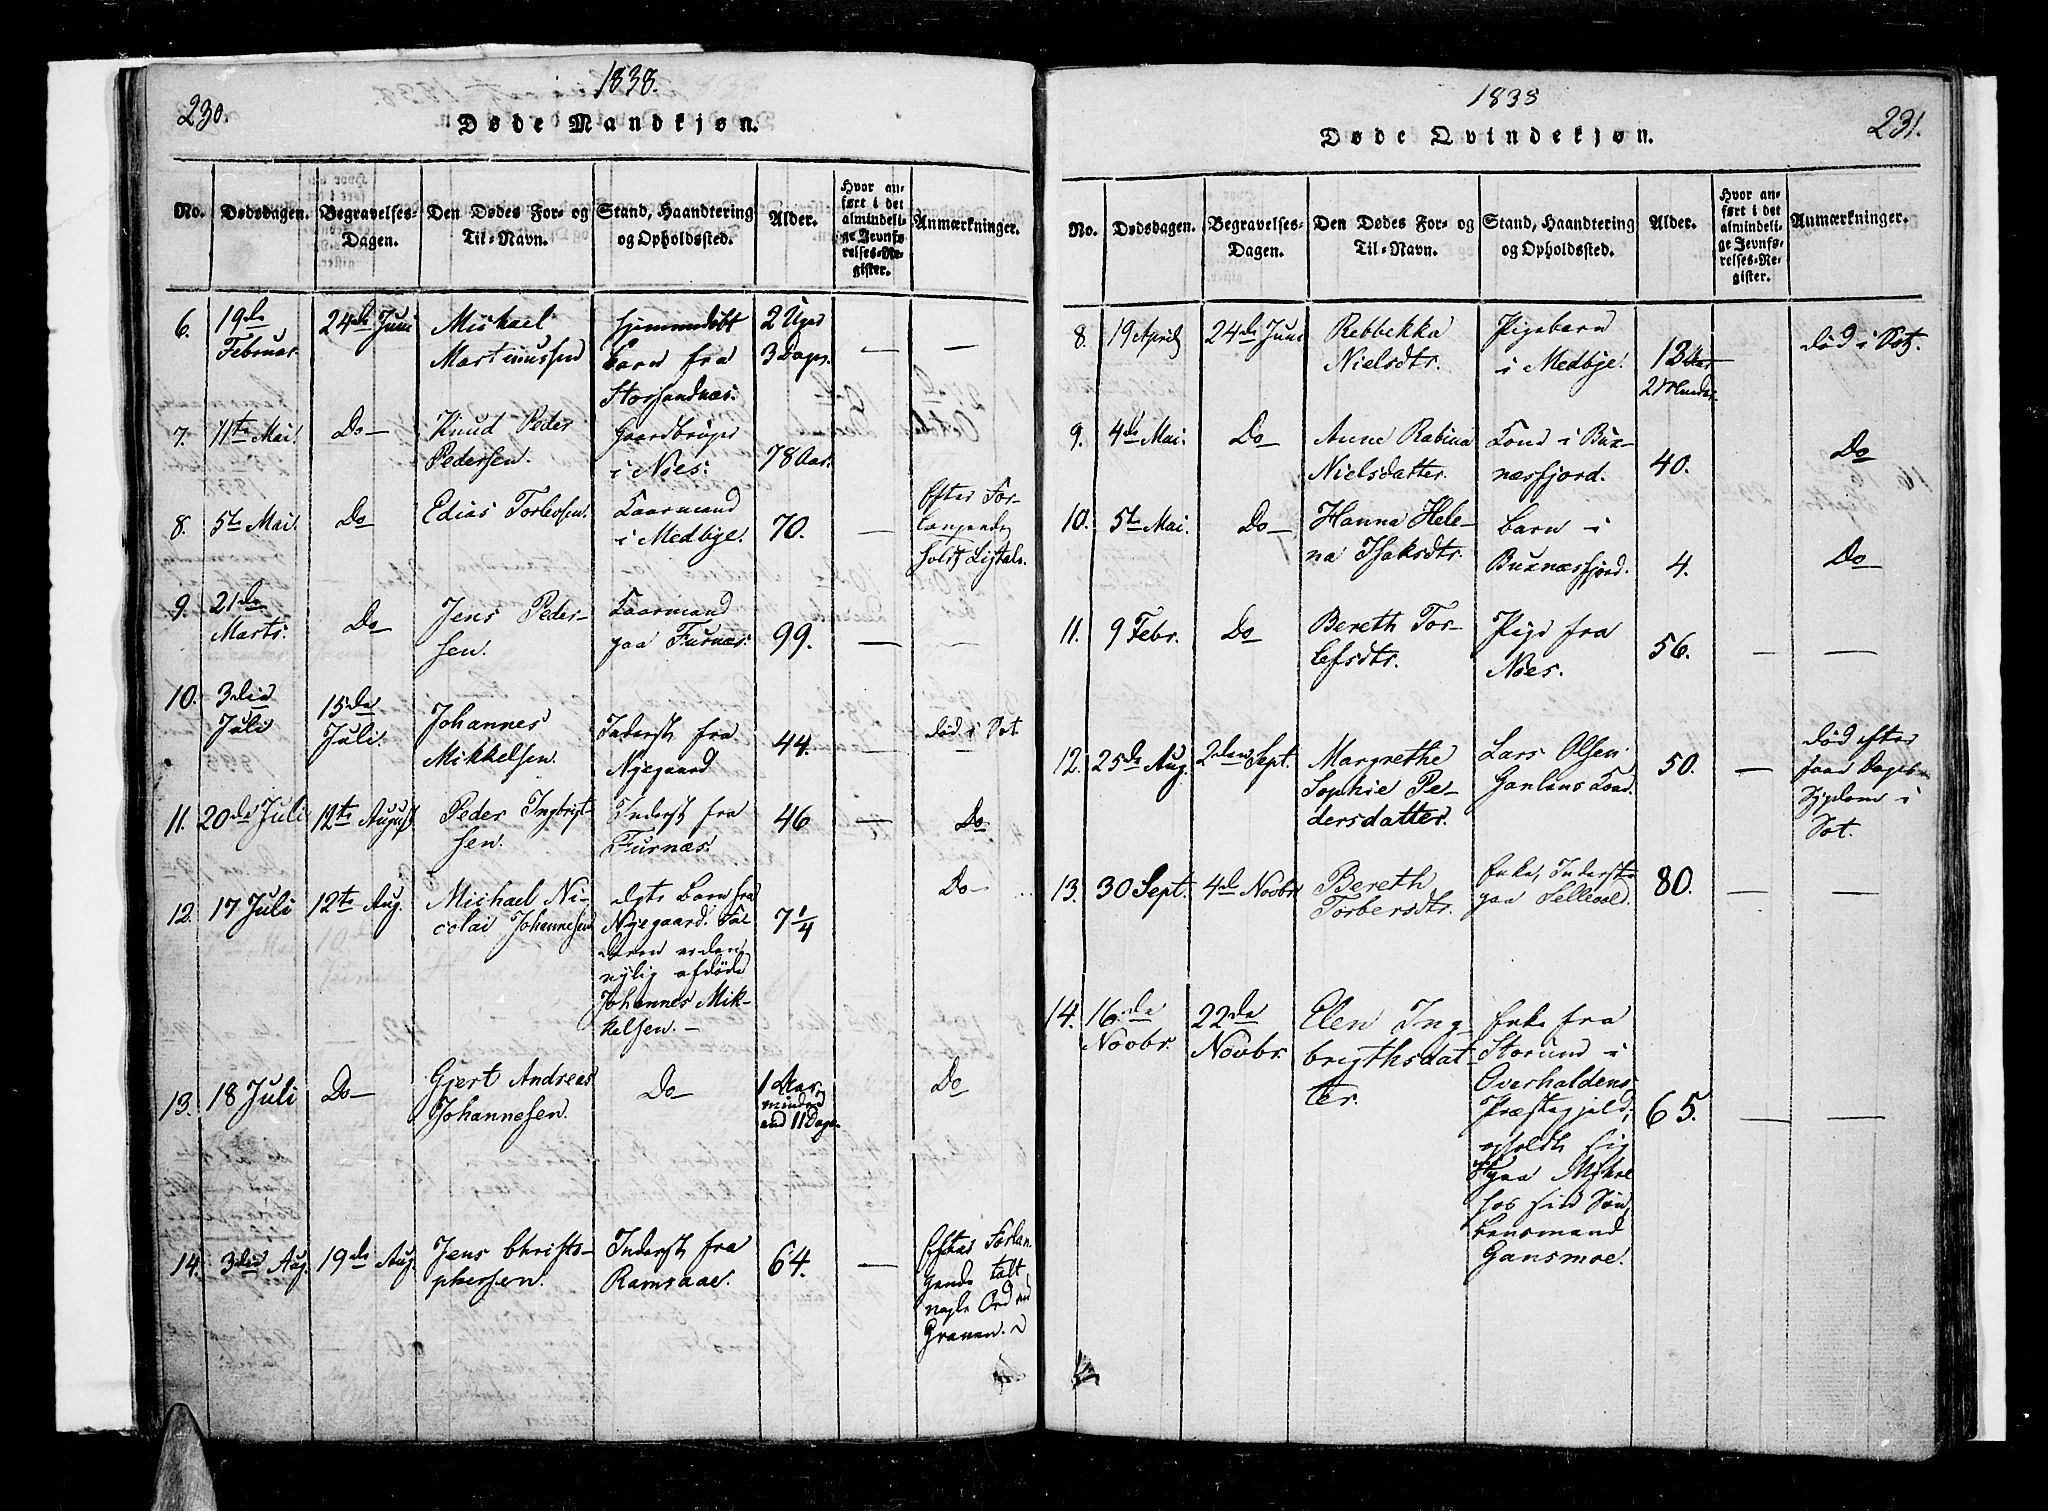 230.
1838.
Døde Mandkjøn.
No.
Dødsdagen.
Begravelses-
Dagen.
Den Dødes For- og
Til-Navn.
Stand, Haandtering
og Opholdssted.
Alder.
Hvor an-
ført i det
almindeli-
ge Jevnfø-
relses-Re-
gister.
Anmærkninger.
6.
19de
Februar.
24de Juni
Michael
Martinussen
hjemmedøbt
Barn fra
Storsandnæs.
2 Uger
3 Dage.
—
—
7.
11te Mai.
Do —
Knud Peder
Pedersen.
Gaardbruger
i Noes.
78 Aar.
8.
5te Mai.
Do
Edias Torlevsen.
Kaarmand
i Medbye.
70.
—
Efter For-
langende
holdt Ligtale.
9.
21de
Marts.
Do
Jens Peder-
sen.
Kaarmand
paa Furnæs.
99.
—
—
10.
3die
Juli
15de
Juli.
Johannes
Mikkelsen.
Inderst fra
Nyegaard
44.
—
død i Sot
11.
20de Juli
12te August
Peder Ingbrigt-
sen.
Inderst fra
Furnæs.
46
—
Do
12.
17 Juli
12te Aug.
Michael Ni-
colai Johannesen
dgts Barn fra
Nyegaard. Fa-
deren er den
nylig afdøde
Johannes Mik-
kelsen. —
7 1/4
Do —
13.
18 Juli
Do —
Gjert Andreas
Johannesen.
Do
1 Aar,
mindre
end 11 Dage.
Do
14.
3die Aug.
19de Aug.
Jens Christo-
phersen.
Inderst fra
Ramsaae.
64.
—
Efter Forlan-
gende talt
nogle Ord ved
Graven.
1838
231.
Døde Qvindekjøn.
No.
Dødsdagen.
Begravelses-
Dagen.
Den Dødes For- og
Til-Navn.
Stand, Haandtering
og Opholdssted.
Alder.
Hvor an-
ført i det
almindeli-
ge Jevnfø-
relses-Re-
gister.
Anmærkninger.
8.
19 April
24de Juni
Rebbekka
Nielsdtr.
Pigebarn
i Medbye.
13 Aar
2 Maaneder.
død i Sot.
9.
4de Mai.
Do
Anne Rabina
Nielsdatter.
Kone i Bux-
næsfjord.
40.
Do
10.
5te Mai.
Do —
Hanna Hele-
na Isaksdtr.
Barn i
Buxnæsfjord.
4.
Do
11.
9 Febr.
Do
Bereth Tor-
lefsdtr.
Pige fra
Noes.
56.
—
—
12.
25de Aug.
2den Sept.
Margrethe
Sophie Pe-
dersdatter.
Lars Olsen
Ganlans Kone.
50.
—
død efter
faae Dages
Sygdom i
Sot.
13.
30 Sept.
4de Novbr
Bereth
Torbersdtr.
Enke, Inderste
paa Sellevold.
80.
—
—
14.
16de
Novbr.
22de
Novbr.
Elen Ing-
brigthsdat-
ter.
Enke fra
Storund i
Overhaldens
Præstegjeld,
opholdt sig
paa
hos sin Søn,
Lensmand
Gansmoe.
65.
—
—